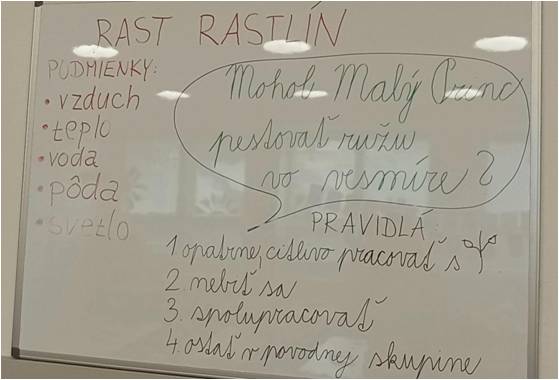 RAST RASTLÍN
PODMIENKY:
• vzduch
• teplo
• voda
• pôda
• svetlo
Mohol Malý Princ
pestovať ružu
vo vesmíre?
PRAVIDLÁ:
1 opatrne, citlivo pracovať s
2. nebiť sa
3. spolupracovať
4. ostať v povodnej skupine